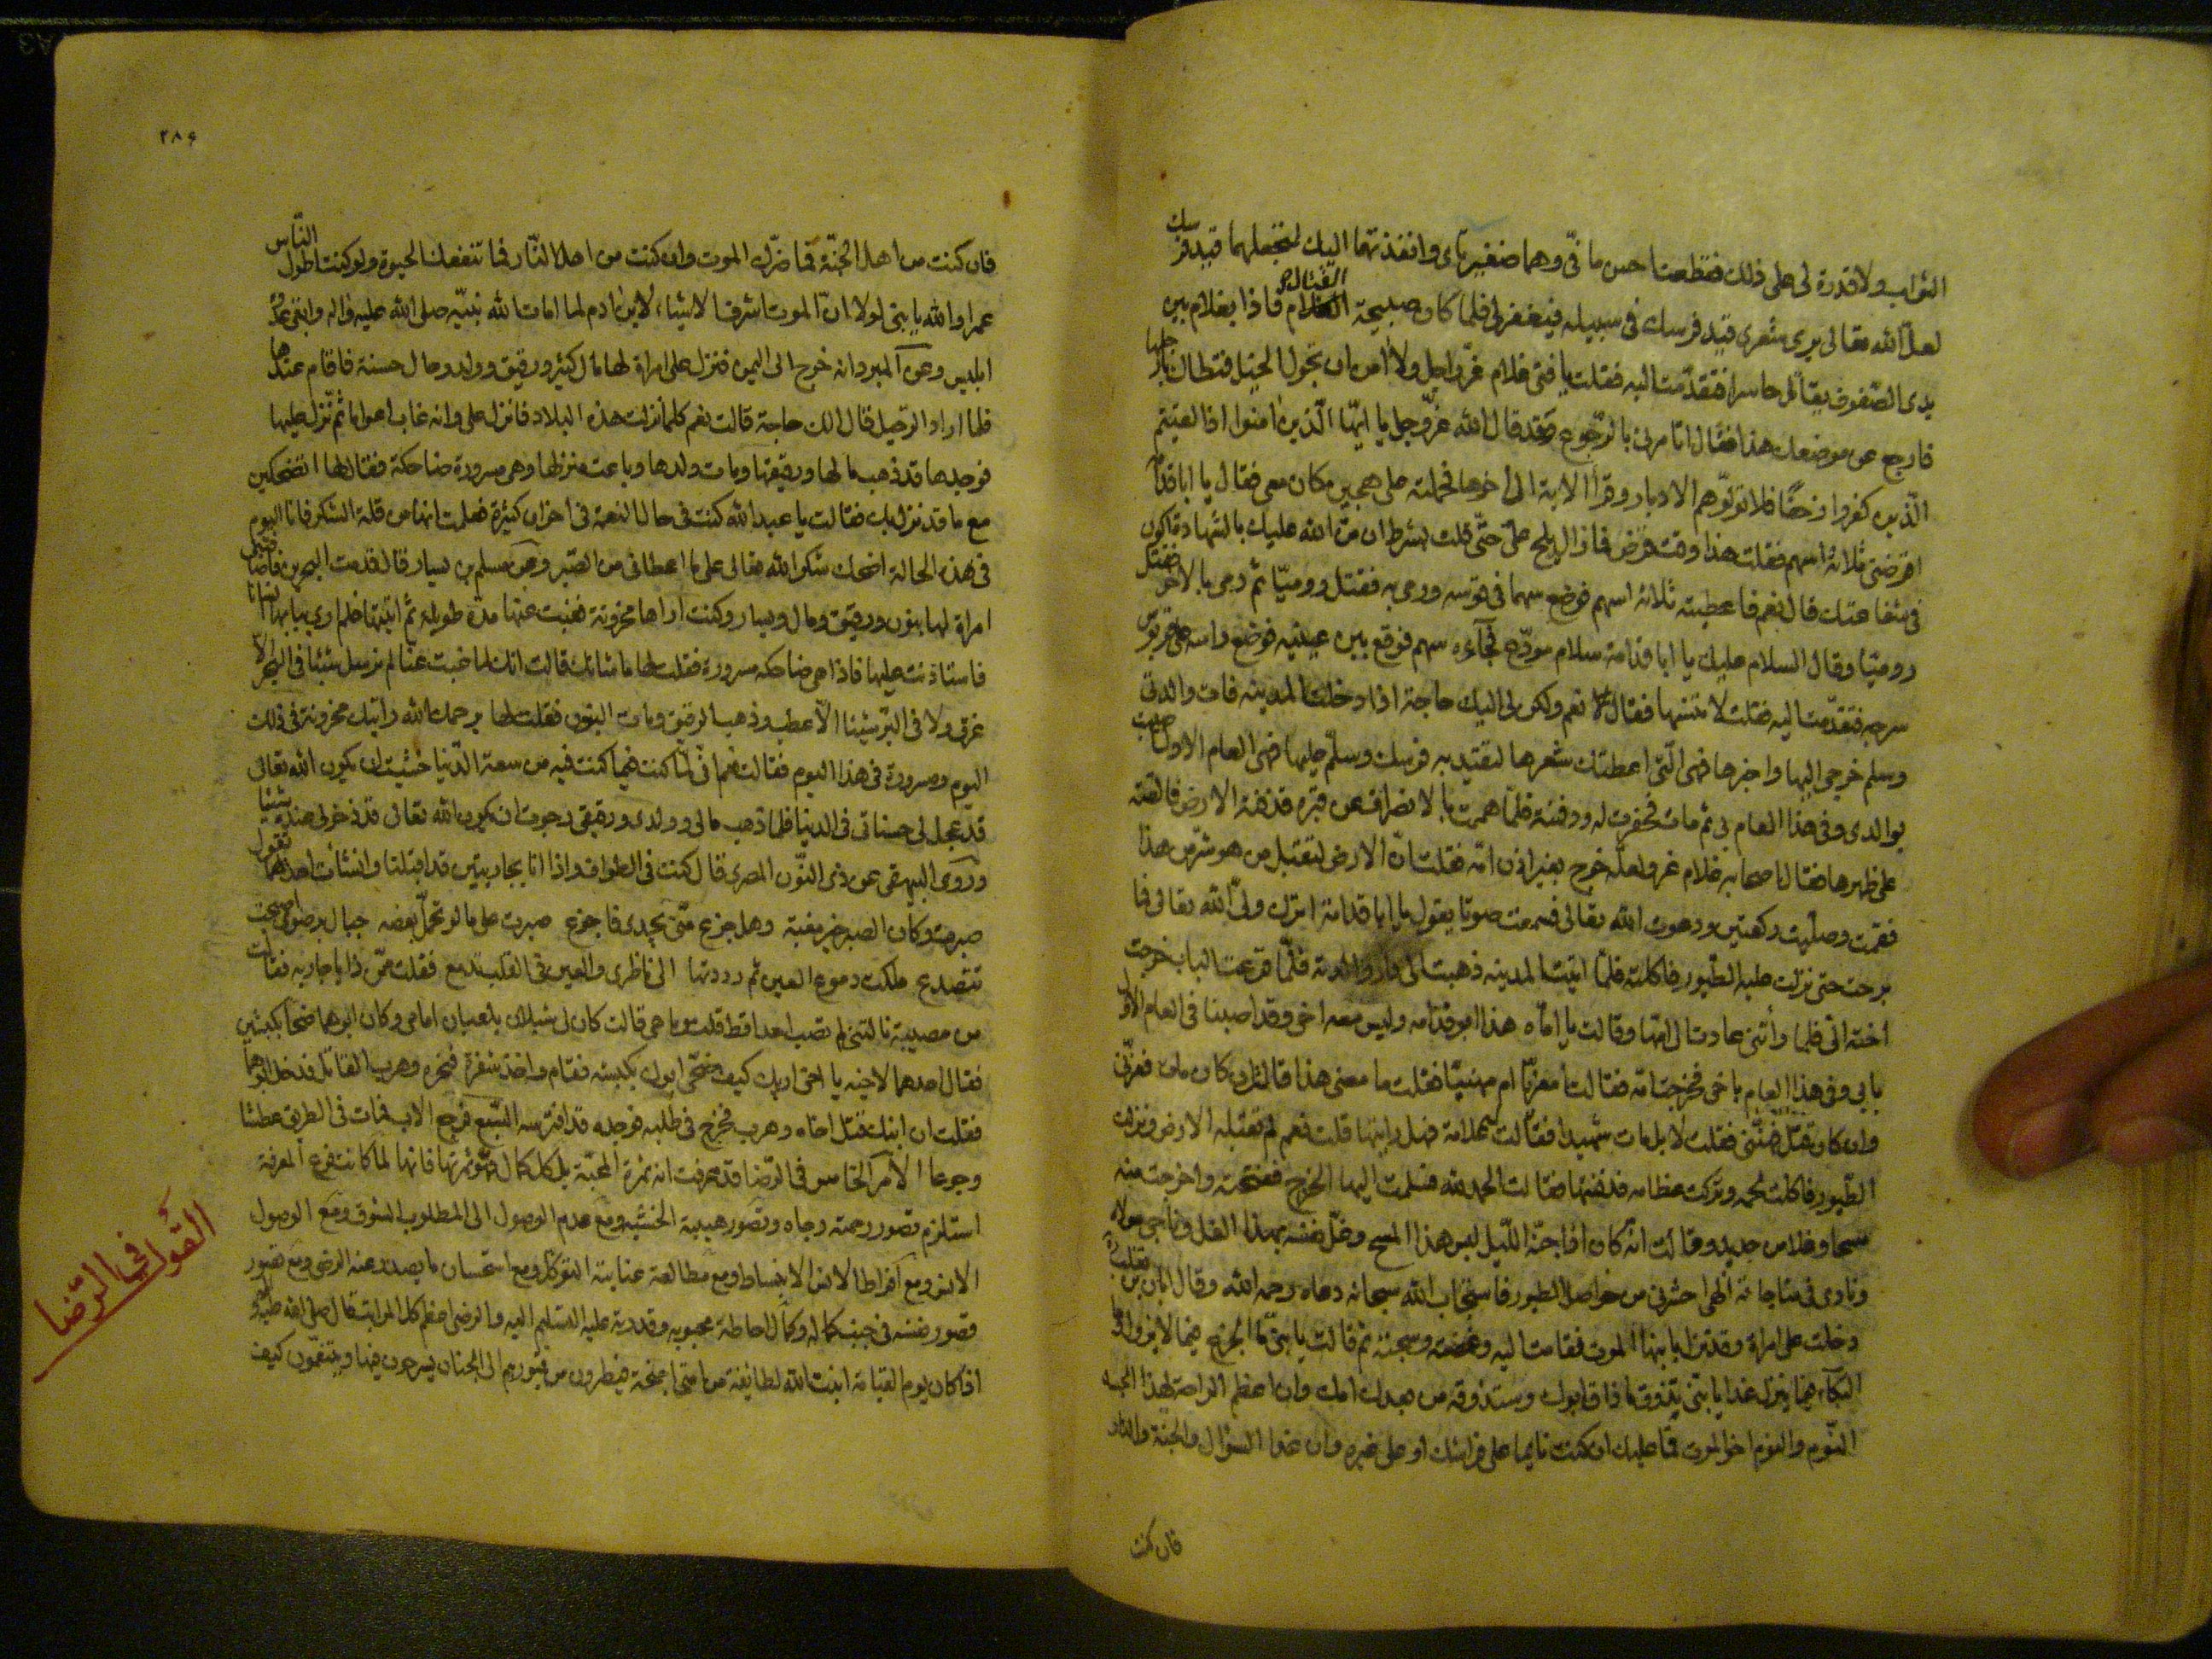 الثواب ولا قدرة لي على ذلك فقطعت احسن ما فيّ وهما ضفيرتاى وانفذتهما اليك لتجعلهما قيد فرسك
لعل الله تعالى يرى شعرى قيد فرسك في سبيله فيغفر لي فلما كان صبيحة القتال فاذا بغلام بين
يدى الصفوف يقاتل حاسرا فتقدمت اليه فقلت يا فتى غلام غرّ راجل ولا امن ان تجول الخيل فتطاك بارجلها
فارجع عن موضعك هذا فقال اتامرنى بالرجوع وقد قال الله عز وجل يا ايها الذين امنوا اذا لقيتم
الذين كفروا زحفا فلا تولوهم الادبار وقرأ الاية الى اخرها فحملته على هجين كان معى فقال يا ابا قدامة
اقرضنى ثلاثة اسهم فقلت هذا وقت قرض فما زال يلح علىّ حتى قلت بشرط ان منّ الله عليك بالشهادة اكون
في شفاعتك قال نعم فاعطيته ثلاثة اسهم فوضع سهما في قوسه ورمى به فقتل روميا ثم رمى بالاخر فقتل
روميا وقال السلام عليك يا ابا قدامة سلام مودع فجاءه سهم فوقع بين عينيه فوضع راسه على قربوس
سرجه فتقدمت اليه فقلت لا تنسها فقال نعم ولكن لى اليك حاجة اذا دخلت المدينة فات والدتى
وسلم خرجى اليها واخبرها فهى التى اعطتك شعرها لتقيد به فرسك وسلم عليها فهى العام الاول اصيبت
بوالدى وفى هذا العام بى ثم مات فحفرت له ودفنته فلما هممت بالانصراف عن قبره قذفته الارض فالقته
على ظهرها فقال اصحابه غلام غر ولعله خرج بغير اذن امه فقلت ان الارض لتقبل من هو شر من هذا
فقمت وصليت ركعتين ودعوت الله تعالى فسمعت صوتا يقول يا ابا قدامة اترك ولىّ الله تعالى فما
برحت حتى نزلت عليه الطيور فاكلته فلما اتيت المدينة ذهبت الى دار والدته فلما قرعت الباب خرجت
اخته الىّ فلما رأتنى عادت الى امها وقالت يا اماه هذا ابو قدامة وليس معه اخى وقد اصبنا في العام الاول
بابى وفى هذا العام باخى فخرجت امه فقالت امعزيا ام مهنيا فقلت ما معنى هذا قالت ان كان مات فعزنى
وان كان قتل فهنّنى فقلت لا بل مات شهيدا فقالت له علامة فهل رايتها قلت نعم لم تقبله الارض ونزلت
الطيور فاكلت لحمه وتركت عظامه فدفنتها فقالت الحمد لله فسلمت اليها الخرج ففتحته واخرجت منه
مسحا وغلا من حديد وقالت انه كان اذا جنّه الليل لبس هذا المسح وغل نفسه بهذا الغل وناجى مولاه
ونادى في مناجاته الهى احشرنى من حواصل الطيور فاستجاب الله سبحانه دعاه رحمه الله وقال ابان بن تغلب
دخلت على امراة وقد نزل بابنها الموت فقامت اليه وغمضته وسجته ثم قالت يا بنى ما الجزع فيما لا يزول وما
البكاء فيما ينزل غدا يا بنى تذوق ما ذاق ابوك وستذوقه من بعدك امك وان اعظم الراحة لهذا الجسد
النوم والنوم اخو الموت فما عليك ان كنت نايما على فراشك او على غيره وان غدا السؤال والجنة والنار
فان كنت
٢٨۶
فان كنت من اهل الجنة فما ضرّك الموت وان كنت من اهل النار فما تنفعك الحيوة ولو كنت اطول الناس
عمرا والله يا بنى لولا ان الموت اشرف الاشياء لابن ادم لما امات الله نبيه صلى الله عليه واله وابقى عدوه
ابليس وعن المبرد انه خرج الى اليمن فنزل على امراة لها مال كثير ورقيق وولد وحال حسنة فاقام عندها
فلما اراد الرحيل قال الك حاجة قالت نعم كلما نزلت هذه البلاد فانزل على وانه غاب اعواما ثم نزل عليها
فوجدها قد ذهب مالها ورقيقها ومات ولدها وباعت منزلها وهى مسرورة ضاحكة فقال لها اتضحكين
مع ما قد نزل بك فقالت يا عبد الله كنت في حال النعمة في احزان كثيرة فعلمت انها من قلة الشكر فانا اليوم
في هذه الحالة اضحك شكرا لله تعالى على ما اعطانى من الصبر وعن مسلم بن يسار قال قدمت البحرين فاضافتنى
امراة لها بنون ورقيق ومال ويسار وكنت اراها محزونة فغبت عنها مدة طويلة ثم اتيتها فلم ار ببابها انسانا
فاستاذنت عليها فاذا هى ضاحكه مسرورة فقلت لها ما شانك قالت انك لما غبت عنا لم نرسل شيئا في البحر الا
غرق ولا في البر شيئا الا عطب وذهب الرقيق ومات البنون فقلت لها يرحمك الله رايتك محزونة في ذلك
اليوم ومسرورة في هذا اليوم فقالت نعم انى لما كنت فيما كنت فيه من سعة الدنيا خشيت ان يكون الله تعالى
قد عجل لى حسناتى في الدنيا فلما ذهب مالى وولدى ورقيقى رجوت ان يكون الله تعالى قد ذخر لى عنده شيئا
وروى البيهقى عن ذى النون المصرى قال كنت في الطواف واذا انا بجاريتين قد اقبلتا وانشأت احدهما تقول
صبرت وكان الصبر خير مغبة وهل جزع منى يجدى فاجزع صبرت على ما لو تحمل بعضه جبال برضوى اصبحت
تتصدع ملكت دموع العين ثم رددتها الى ناظرى والعين في القلب تدمع فقلت مم ذا يا جارية فقالت
من مصيبة نالتنى لم تصب احدا قط قلت وما هى قالت كان لى شبلان يلعبان امامى وكان ابوهما ضحا بكبشين
فقال احدهما لاخيه يا اخى اريك كيف ضحى ابوك بكبشه فقام واخذ شفرة فنحره وهرب القاتل فدخل ابوهما
فقلت ان ابنك قتل اخاه وهرب فخرج في طلبه فوجده قد افترسه السبع فرجع الاب فمات في الطريق عطشا
وجوعا الامر الخامس في الرضا قد عرفت انه ثمرة المحبة بل كل كمال فهو ثمرتها فانها لما كانت فرع المعرفة
استلزم تصور رحمته رجاه وتصور هيبته الخشية ومع عدم الوصول الى المطلوب الشوق ومع الوصول
الانس ومع افراط الانس الانبساط ومع مطالعة عنايته التوكل ومع استحسان ما يصدر عنه الرضى ومع تصور
قصور نفسه في جنب كماله وكمال احاطة محبوبه وقدرته عليه التسليم اليه والرضى اعظم كل المراتب قال صلى الله عليه واله
اذا كان يوم القيامة انبت الله لطائفة من امتى اجنحة فيطيرون من قبورهم الى الجنان يسرحون فيها ويتنعمون كيف
القول في الرّضا